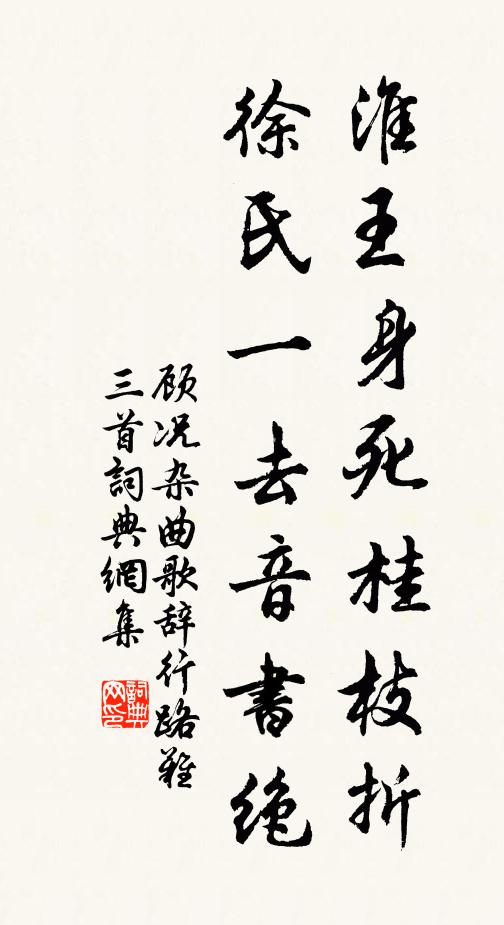 淮王身死桂枝折
徐氏一去音書绝
顾况杂曲歌辞行路難
三首詞典網集
詞典网印